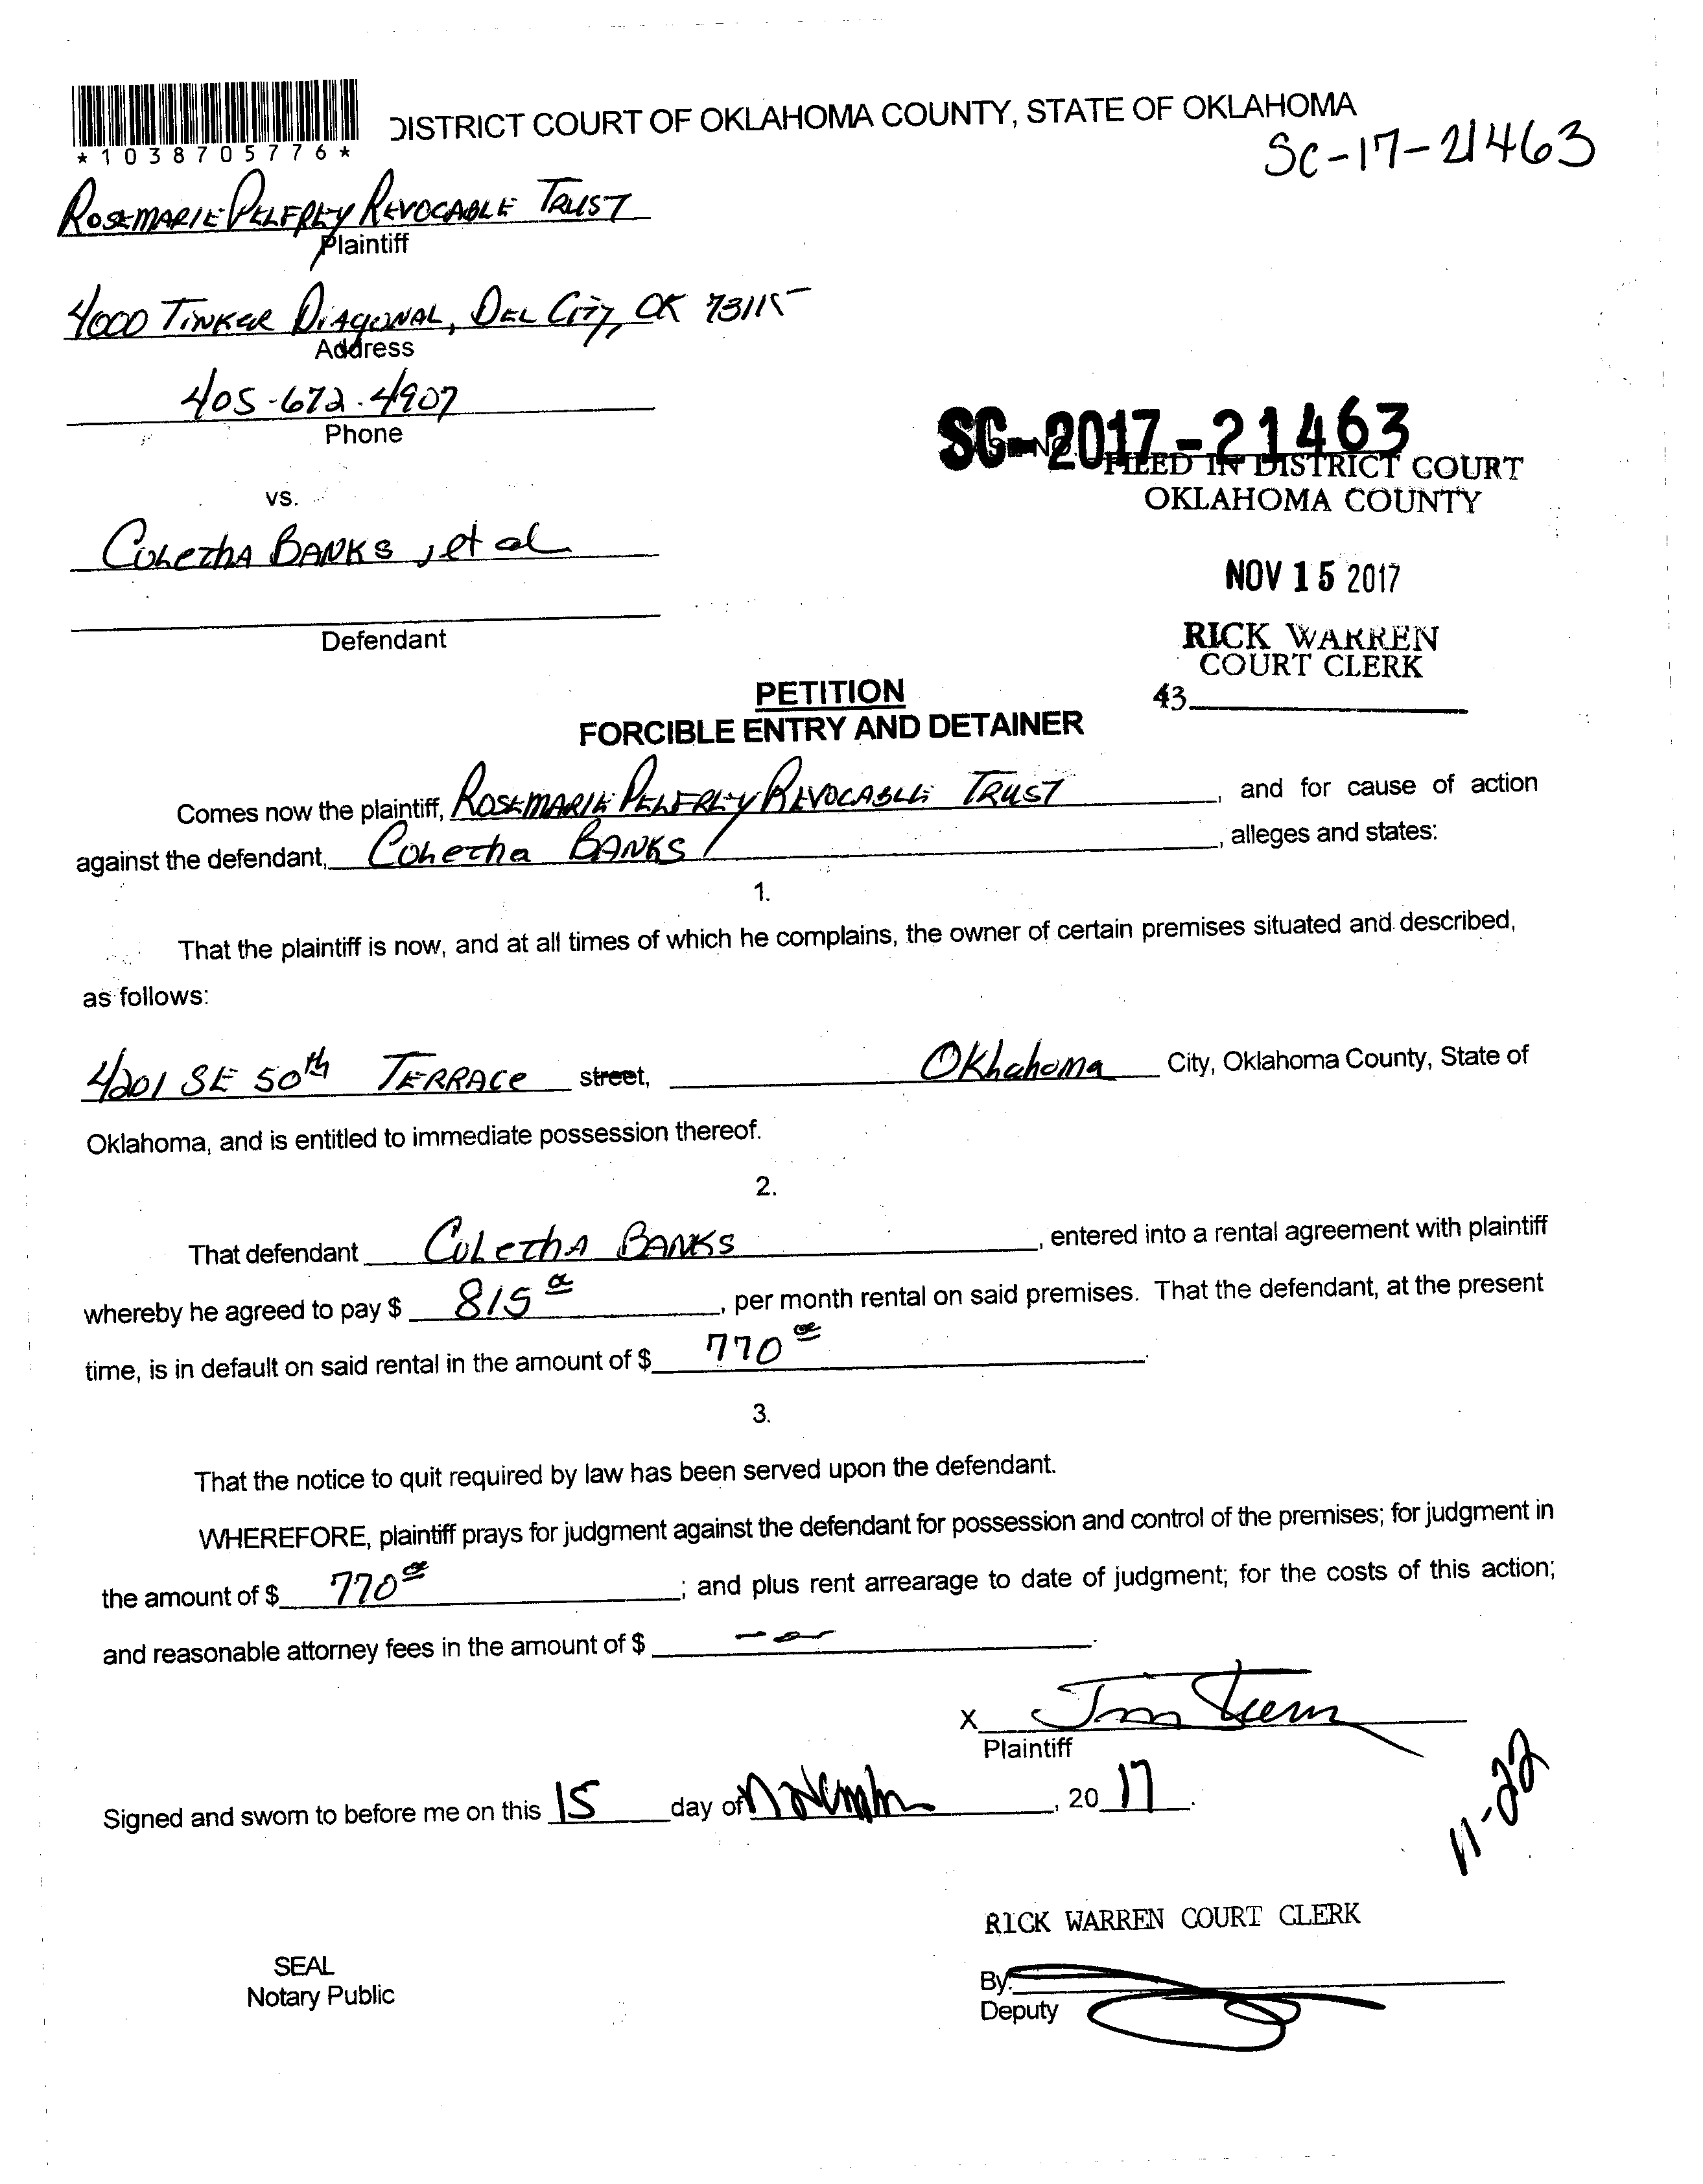 *1038705776*
DISTRICT COURT OF OKLAHOMA COUNTY, STATE OF OKLAHOMA
SC-17-21463
ROSEMARIE PELFREY REVOCABLE TRUST
Plaintiff
4000 TINKER DIAGONAL, DEL CITY, OK 73115
Address
405-672-4907
Phone
SC-2017-21463
FILED IN DISTRICT COURT
OKLAHOMA COUNTY
vs.
COLETHA BANKS, et al
NOV 15 2017
Defendant
RICK WARREN
COURT CLERK
43
PETITION
FORCIBLE ENTRY AND DETAINER
Comes now the plaintiff, ROSEMARIE PELFREY REVOCABLE TRUST, and for cause of action
against the defendant, Coletha BANKS, alleges and states:
1.
That the plaintiff is now, and at all times of which he complains, the owner of certain premises situated and described,
as follows:
4201 SE 50th TERRACE street, Oklahoma City, Oklahoma County, State of
Oklahoma, and is entitled to immediate possession thereof.
2.
That defendant COLETHA BANKS, entered into a rental agreement with plaintiff
whereby he agreed to pay $ 815 00, per month rental on said premises. That the defendant, at the present
time, is in default on said rental in the amount of $ 770 00.
3.
That the notice to quit required by law has been served upon the defendant.
WHEREFORE, plaintiff prays for judgment against the defendant for possession and control of the premises; for judgment in
the amount of $ 770 00; and plus rent arrearage to date of judgment; for the costs of this action;
and reasonable attorney fees in the amount of $ -0-.
X
Plaintiff
Signed and sworn to before me on this 15 day of November, 2017.
11-22
RICK WARREN COURT CLERK
SEAL
Notary Public
By:
Deputy